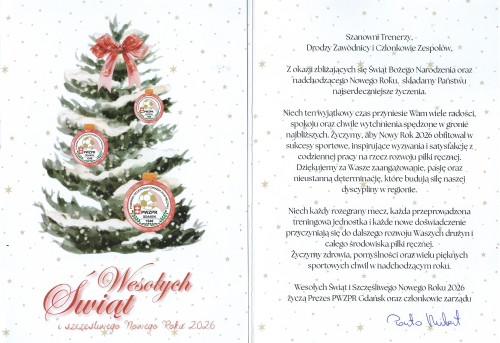 PWZPR
GDAŃSK
1946
PWZPR
GDAŃSK
1946
PWZPR
GDAŃSK
1946
Wesołych
Świąt
i szczęśliwego Nowego Roku 2026
Szanowni Trenerzy,
Drodzy Zawodnicy i Członkowie Zespołów,
Z okazji zbliżających się Świąt Bożego Narodzenia oraz
nadchodzącego Nowego Roku, składamy Państwu
najserdeczniejsze życzenia.
Niech ten wyjątkowy czas przyniesie Wam wiele radości,
spokoju oraz chwile wytchnienia spędzone w gronie
najbliższych. Życzymy, aby Nowy Rok 2026 obfitował w
sukcesy sportowe, inspirujące wyzwania i satysfakcję z
codziennej pracy na rzecz rozwoju piłki ręcznej.
Dziękujemy za Wasze zaangażowanie, pasję oraz
nieustanną determinację, które budują siłę naszej
dyscypliny w regionie.
Niech każdy rozegrany mecz, każda przeprowadzona
treningowa jednostka i każde nowe doświadczenie
przyczyniają się do dalszego rozwoju Waszych drużyn i
całego środowiska piłki ręcznej.
Życzymy zdrowia, pomyślności oraz wielu pięknych
sportowych chwil w nadchodzącym roku.
Wesołych Świąt i Szczęśliwego Nowego Roku 2026
życzą Prezes PWZPR Gdańsk oraz członkowie zarządu